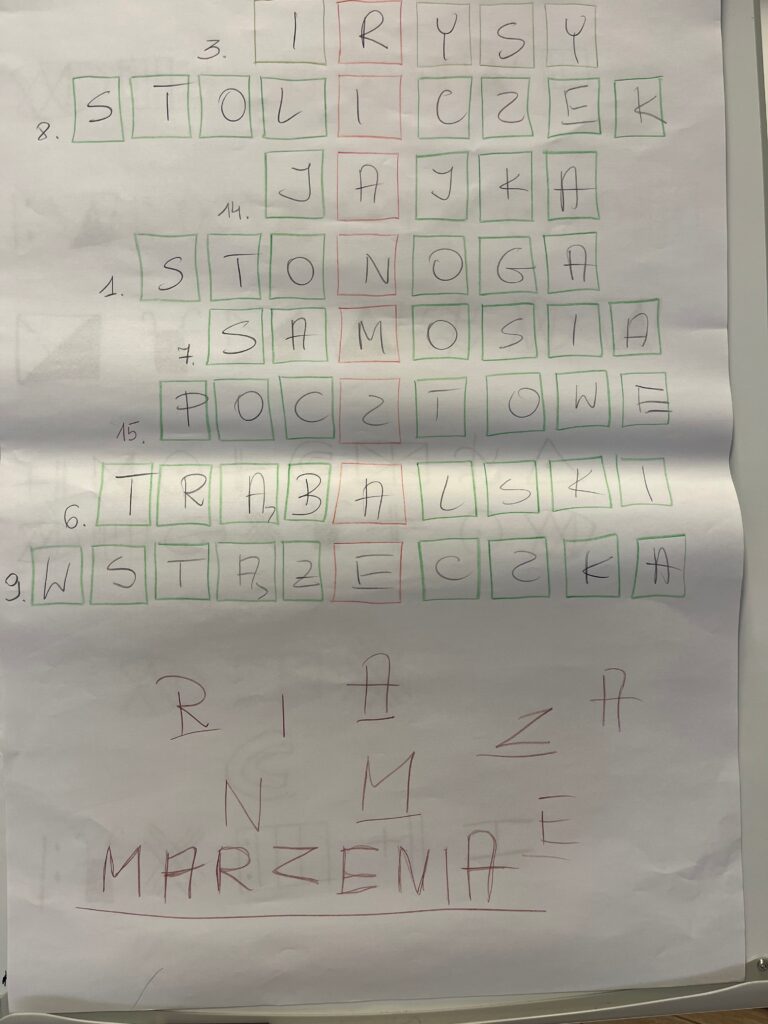 3. IRYSY
8. STOLICZEK
14. JAJKA
1. STONOGA
7. SAMOSIA
15. POCZTOWE
6. TRĄBALSKI
9. WSTĄZECZKA
R I A Z A
N M E
MARZENIA